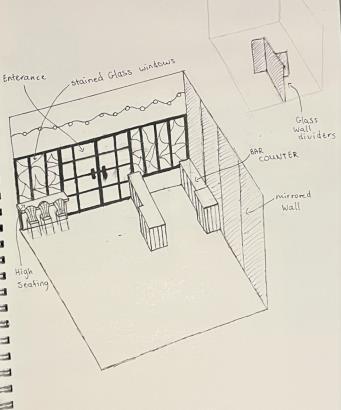 Enterance
stained Glass windows
Glass
Wall
dividers
BAR
COUNTER
mirrored
Wall
High
Seating